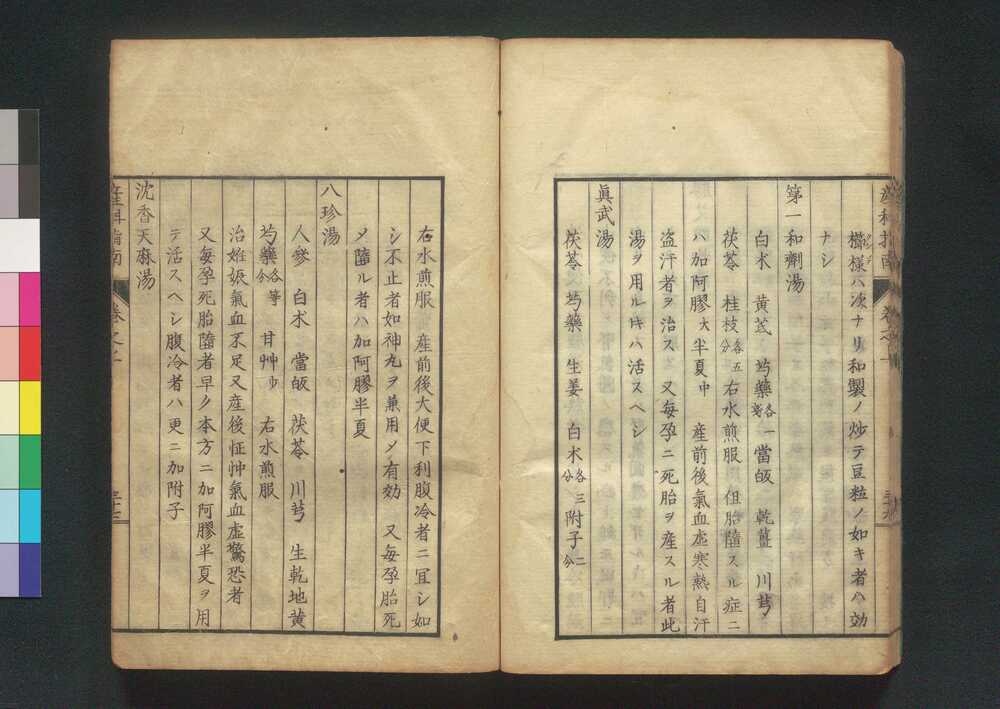 橫様ハ次ナリ和製ノ炒テ豆粒ノ如キ者ハ効
ナシ
第一和劑湯
白朮 黄芪 芍藥各一 當皈 乾薑 川芎
茯苓 桂枝各五分 右水煎服 但胎隨スル症ニ
ハ加阿膠大半夏中 産前後氣血虚寒熱自汗
盗汗者ヲ治ス 又毎孕ニ死胎ヲ産スル者此
湯ヲ用ルキハ活スヘシ
眞武湯
茯苓 芍藥 生姜 白朮各三分 附子二分
右水煎服 産前後大便下利腹冷者ニ冝シ如
シ不止者如神丸ヲ兼用メ有効 又毎孕胎死
メ隨ル者ハ加阿膠半夏
八珍湯
人參 白朮 當皈 茯苓 川芎 生乾地黄
芍藥各等分 甘艸少 右水煎服
治姙娠氣血不足又産後怔忡氣血虚驚恐者
又毎孕死胎隨者早ク本方ニ加阿膠半夏ヲ用
テ活スヘシ腹冷者ハ更ニ加附子
沈香天麻湯
産科指南